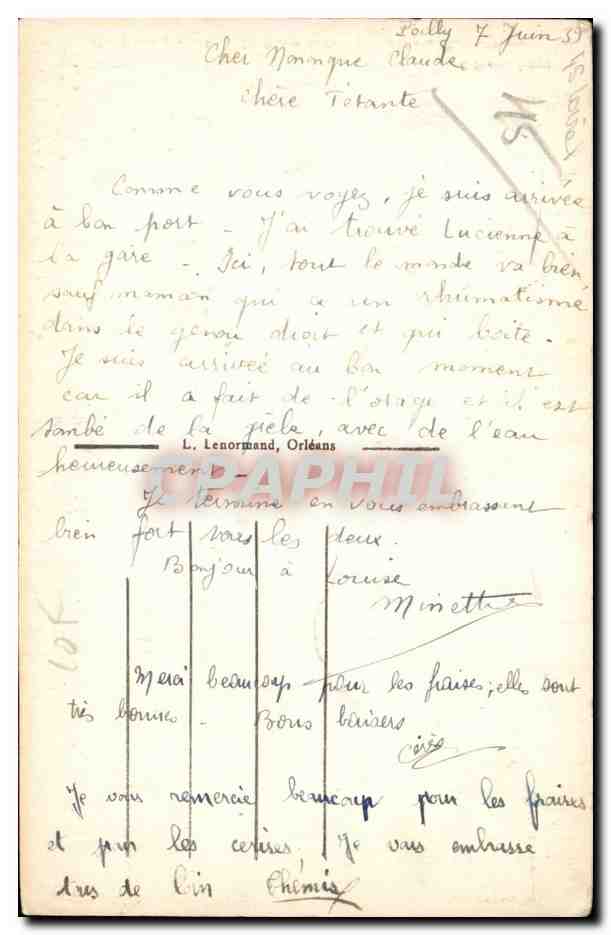 Poilly 7 Juin 39
Cher Nononque Claude
Chère Tétante
Comme vous voyez, je suis arrivée
à bon port - J'ai trouvé Lucienne à
la gare - Ici, tout le monde va bien
sauf maman qui a un rhumatisme
dans le genou droit et qui boite.
Je suis arrivée au bon moment
car il a fait de l'orage et il est
tombé de la grêle, avec de l'eau
L. Lenormand, Orléans
heureusement -
CPAPHIL
Je termine en vous embrassant
bien fort tous les deux.
Bonjour à Louise
Minette
10F
Merci beaucoup pour les fraises; elles sont
très bonnes - Bons baisers
Cérès
Je vous remercie beaucoup pour les fraises
et pour les cerises. Je vous embrasse
tres de loin Thémis